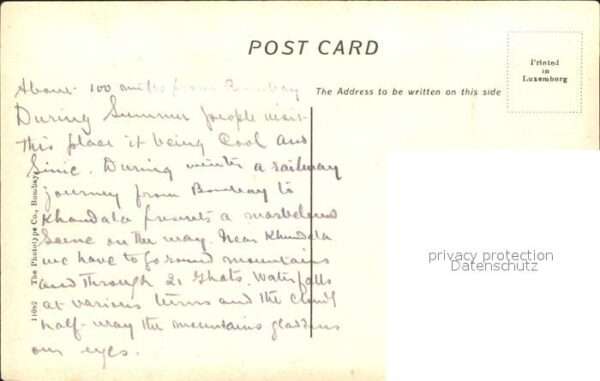 POST CARD
Printed
in
Luxemburg
The Address to be written on this side
About 100 miles from Bombay
During Summer people visit
this place it being Cool and
. During winter a railway
journey from Bombay to
Khandala presents a marvelous
Scene on the way. Near Khandala
we have to go round mountains
and through 21 Ghats. Waterfalls
at various turns and the clouds
half-way the mountains gladdens
our eyes.
The Phototype Co., Bombay
privacy protection
Datenschutz